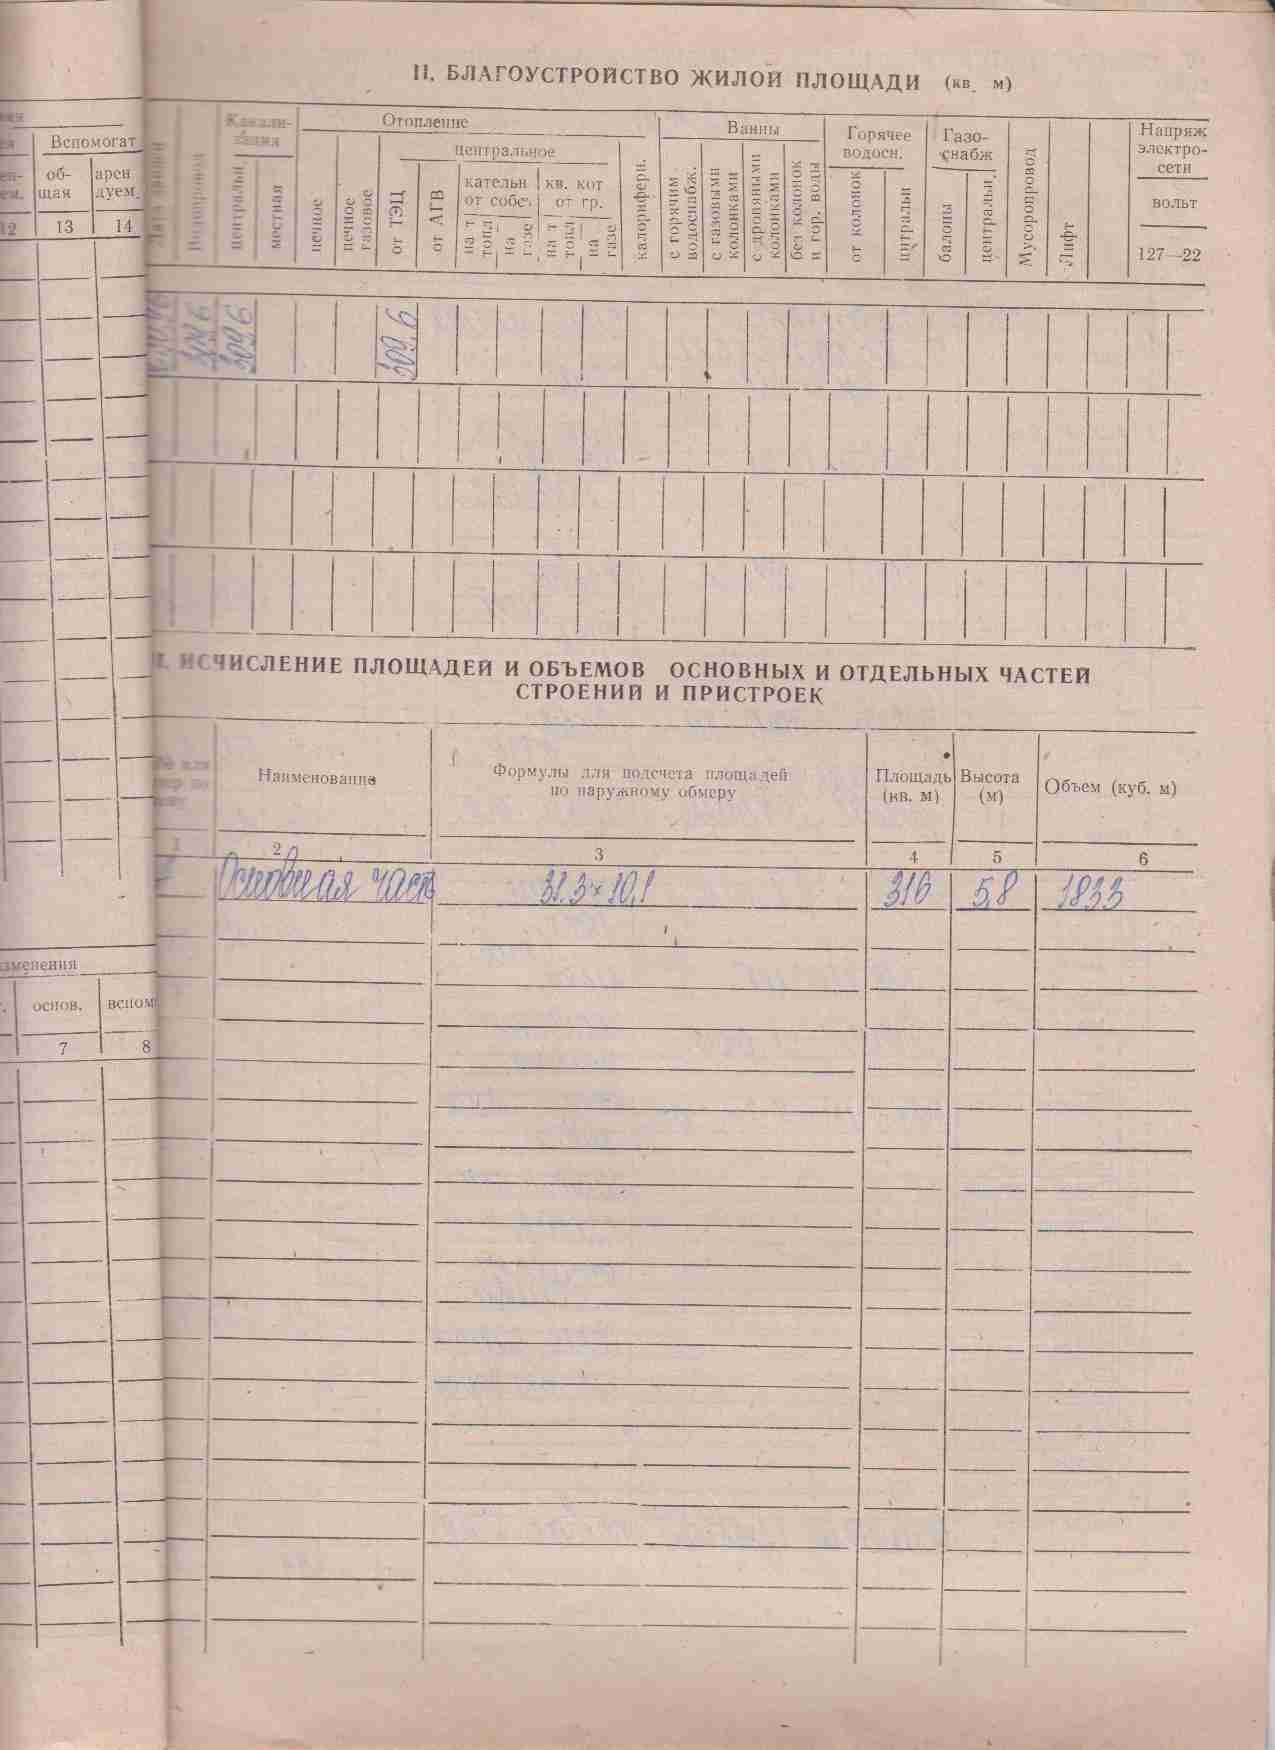 II. БЛАГОУСТРОЙСТВО ЖИЛОЙ ПЛОЩАДИ (кв. м)
Вспомогат
об-
щая
арен
дуем.
12 13 14
Канали-
зация
центральн.
местная
Водопровод
Отопление
печное
печное
газовое
центральное
от ТЭЦ
от АГВ
кательн
от собс.
на т
топл
на
газе
кв. кот
от гр.
на т
топл
на
газе
калориферн.
Ванны
с горячим
водоснабж.
с газовыми
колонками
с дровяными
колонками
без колонок
и гор. воды
Горячее
водосн.
от колонок
цнтральн
Газо-
снабж
балоны
центральн.
Мусоропровод
Лифт
Напряж
электро-
сети
вольт
127—22
309,6 309,6 309,6
ИСЧИСЛЕНИЕ ПЛОЩАДЕЙ И ОБЪЕМОВ ОСНОВНЫХ И ОТДЕЛЬНЫХ ЧАСТЕЙ
СТРОЕНИЙ И ПРИСТРОЕК
Наименование
Формулы для подсчета площадей
по наружному обмеру
Площадь
(кв. м)
Высота
(м)
Объем (куб. м)
1 2 3 4 5 6
Основная часть 31.3×10,1 316 5,8 1833
изменения
основ. вспом
7 8